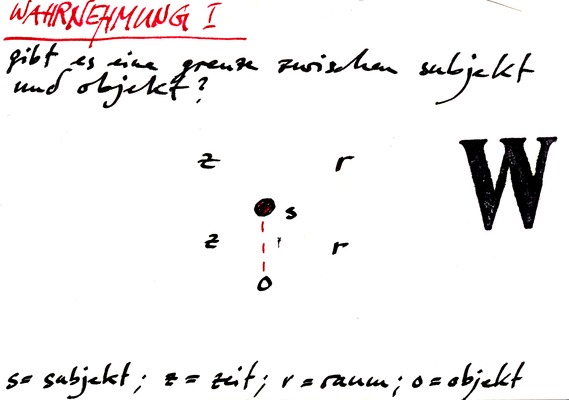 WAHRNEHMUNG I
gibt es eine grenze zwischen subjekt
und objekt?
z r
W
s
z r
o
s = subjekt; z = zeit; r = raum; o = objekt